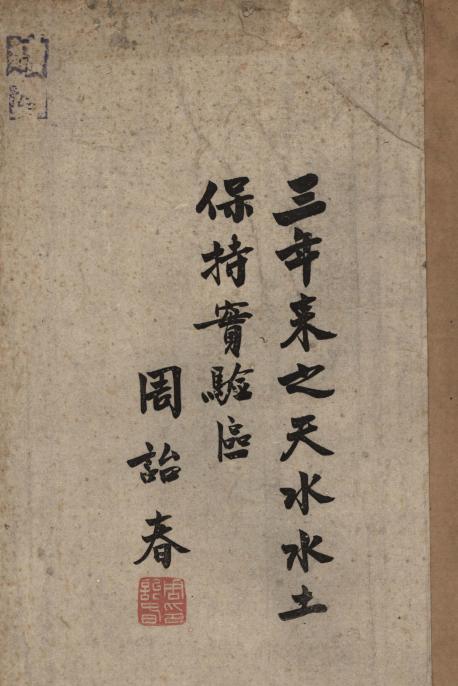 三年来之天水水土
保持實驗區
周詒春